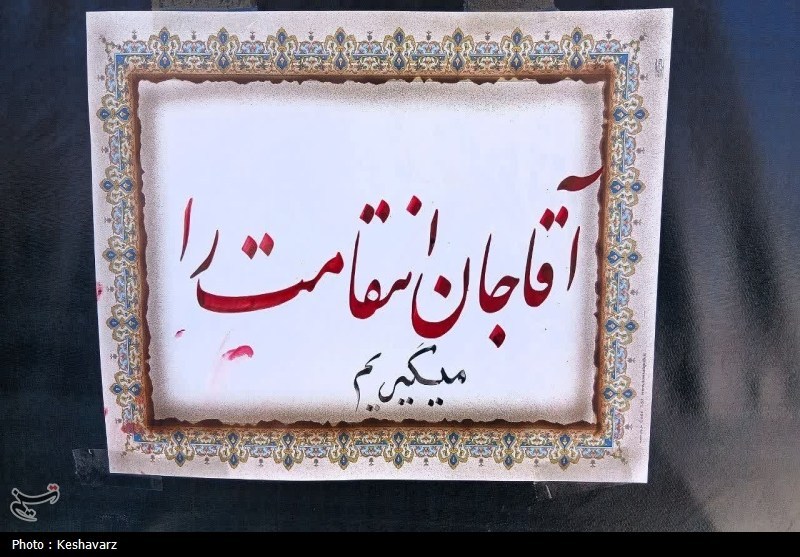 آقاجان انتقامت را
میگیریم
تسنیم
Photo : Keshavarz